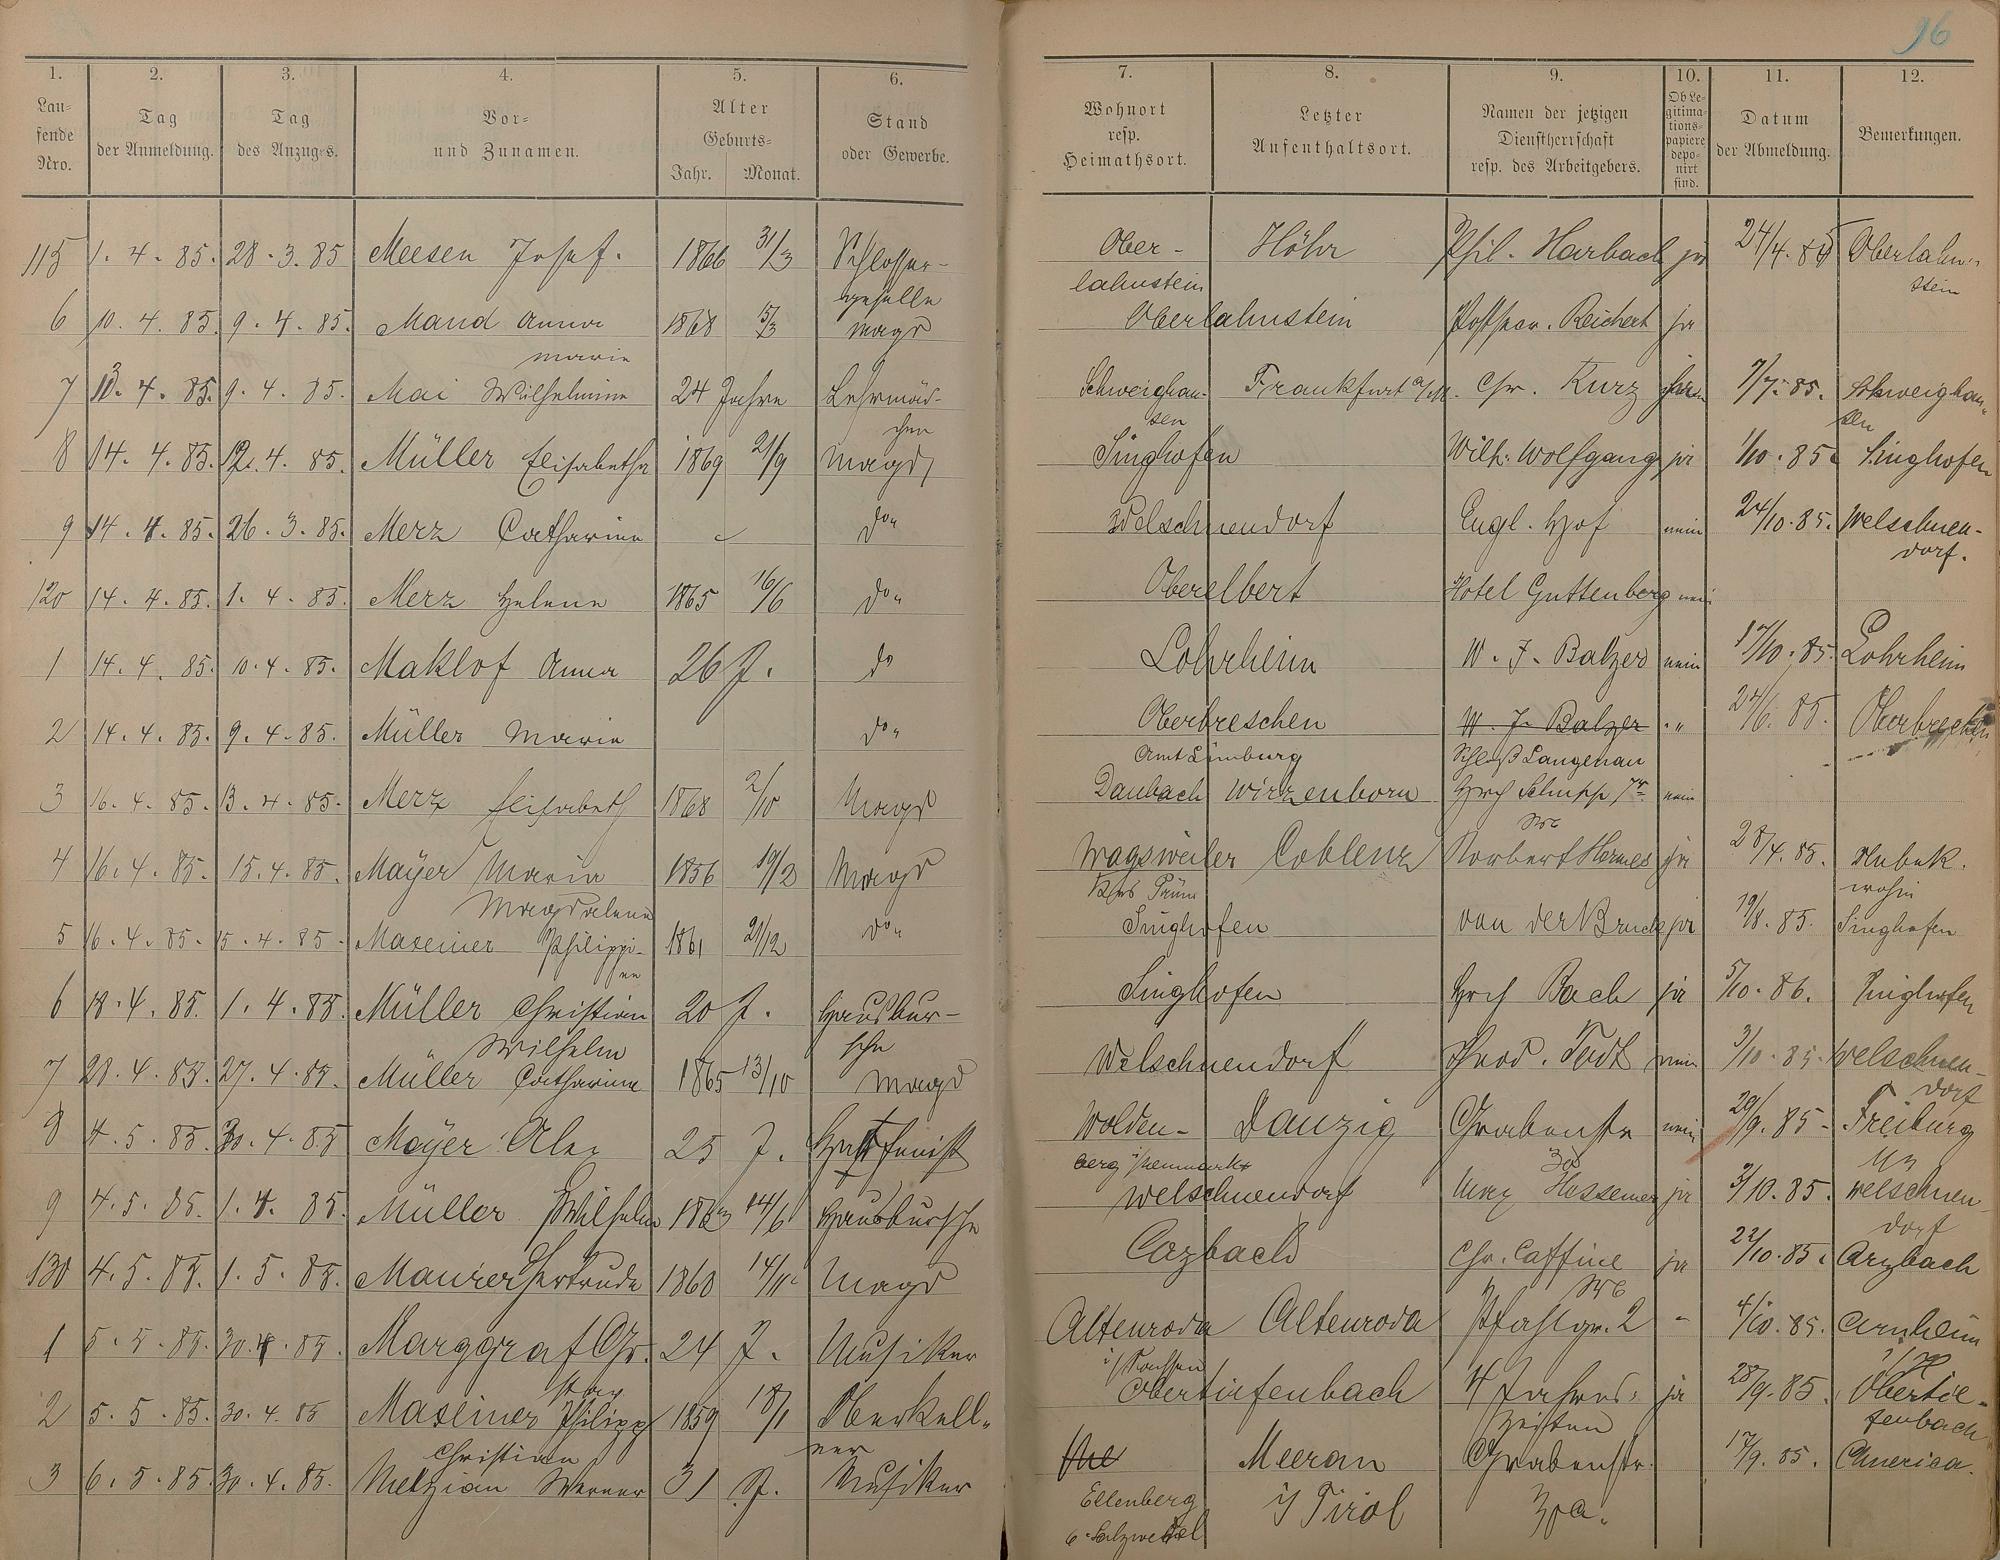 96
1. 2. 3. 4. 5. 6. 7. 8. 9. 10. 11. 12.
Lau-
fende
Nro.
Tag
der Anmeldung.
Tag
des Anzuges.
Vor-
und Zunamen.
Alter
Geburts-
Jahr. Monat.
Stand
oder Gewerbe.
Wohnort
resp.
Heimathsort.
Letzter
Aufenthaltsort.
Namen der jetzigen
Dienstherrschaft
resp. des Arbeitgebers.
Ob Le-
gitima-
tions-
papiere
depo-
nirt
sind.
Datum
der Abmeldung.
Bemerkungen.
115 1. 4. 85. 28. 3. 85 Meesen Josef. 1866 31/3 Schlosser- Ober- Höhr Phil. Harbach ja 24/4. 85 Oberlahn-
geselle lahnstein stein
6 10. 4. 85. 9. 4. 85. Mand Anna 1868 5/3 Magd Oberlahnstein Reichert ja
Marie
7 4. 85. 9. 4. 85. Mai Wilhelmine 24 Jahre Lehrmäd- Schweighau- Frankfurt a/M. Chr. Kurz 7/7. 85. Schweighau-
chen sen sen
8 14. 4. 85. 12. 4. 85. Müller Elisabetha 1869 21/9 Magd Singhofen Wilh. Wolfgang ja 1/10. 85. Singhofen
9 14. 4. 85. 26. 3. 85. Merz Catharina do" Welschnendorf Engl. Hof nein 24/10. 85. Welschnen-
dorf.
120 14. 4. 85. 1. 4. 85. Merz Helene 1865 16/6 do" Oberelbert Hotel Guttenberg nein
1 14. 4. 85. 10. 4. 85. Maklof Anna 26 J. do Lohrheim W. J. Balzer nein 17/10. 85. Lohrheim
2 14. 4. 85. 9. 4. 85. Müller Marie do" Oberbreschen W. J. Balzer " 24/6. 85. Oberbrechen
Amt Limburg Schloß Langenau
3 16. 4. 85. 13. 4. 85. Merz Elisabeth 1868 2/10 Magd Daubach Wirzenborn Schupp nein
4 16. 4. 85. 15. 4. 85. Mayer Maria 1856 19/2 Magd Wagsweiler Coblenz Norbert Hermes ja 28/4. 85. Unbek.
Magdalena Prüm wohin
5 16. 4. 85. 15. 4. 85. Maxeiner Philippi- 1861 21/12 do" Singhofen von der Bruck ja 19/8. 85. Singhofen
ne
6 18. 4. 85. 1. 4. 85. Müller Christian 20 J. Hausbur- Singhofen Bach ja 5/10. 86. Singhofen
Wilhelm sche
7 28. 4. 85. 27. 4. 85. Müller Catharina 1865 13/10 Magd Welschnendorf nein 3/10. 85. Welschnen-
dorf
8 4. 5. 85. 30. 4. 85 Mayer Alex 25 J. Wolden- Danzig Grabenstr nein 29/9. 85. Freiburg
berg
9 4. 5. 85. 1. 4. 85. Müller Wilhelm 14/6 Hausbursche Welschnendorf Hessemer ja 3/10. 85. Welschnen
dorf
130 4. 5. 85. 1. 5. 85. Maurer Gertrude 1860 Magd Chr. Caffine ja 22/10. 85. Arzbach
1 5. 5. 85. 30. 4. 85. Marggraf Chr. 24 J. Musiker Altenroda Altenroda Pfahlgr. 2 - 4/10. 85. Arnheim
2 5. 5. 85. 30. 4. 85 Maxeiner Philipp 1859 18/1 Oberkell- Obertiefenbach 4 Jahres- ja 28/9. 85. Obertie-
Christian ner zeiten fenbach
3 6. 5. 85. 30. 4. 85. Metzian Werner 31 J. Musiker Meeran Grabenstr. 17/9. 85. America.
Ellenberg i/ Tirol
b. Salzwedel